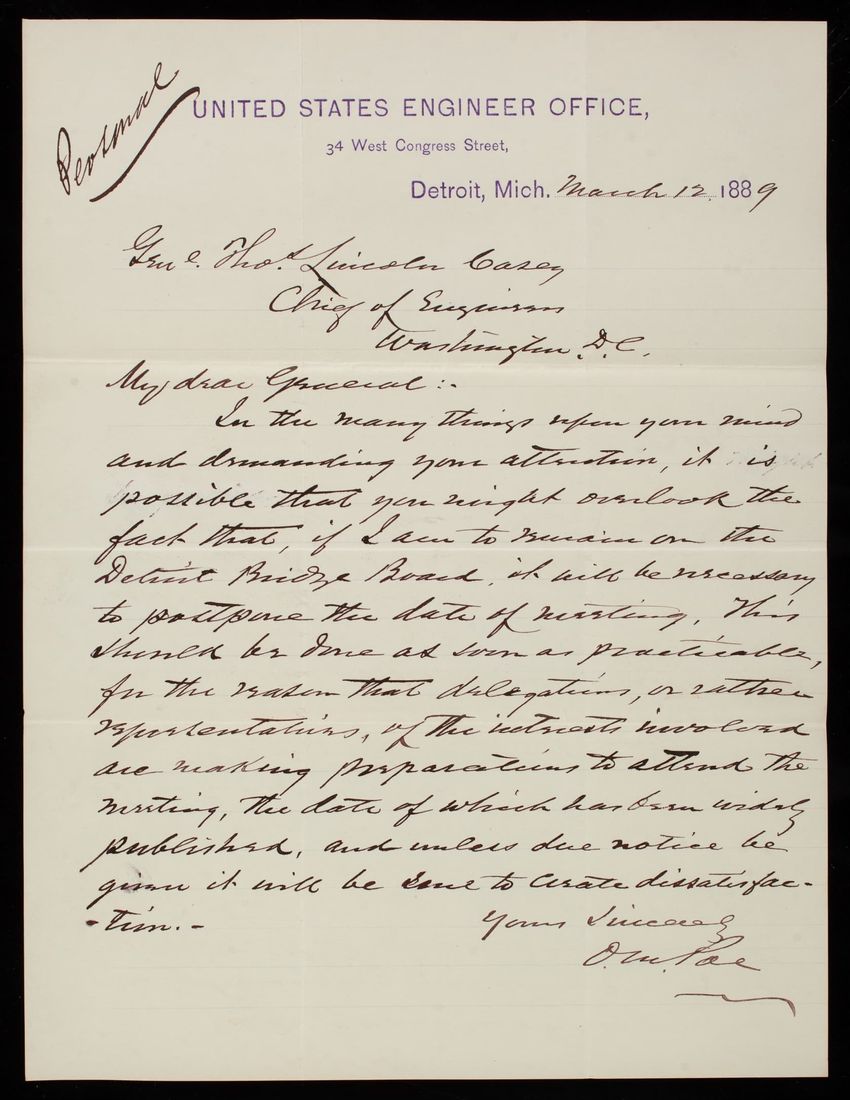 Personal
UNITED STATES ENGINEER OFFICE,
34 West Congress Street,
Detroit, Mich. March 12. 1889
Genl. Thos. Lincoln Casey
Chief of Engineers
Washington D.C.
My dear General:-
In the many things upon your mind
and demanding your attention, it is
possible that you might overlook the
fact that, if I am to remain on the
Detroit Bridge Board, it will be necessary
to postpone the date of meeting. This
should be done as soon as practicable,
for the reason that delegations, or rather
representatives, of the interests involved
are making preparations to attend the
meeting, the date of which has been widely
published, and unless due notice be
given it will be sure to create dissatisfac-
-tion.-
Yours Sincerely
O.M. Poe